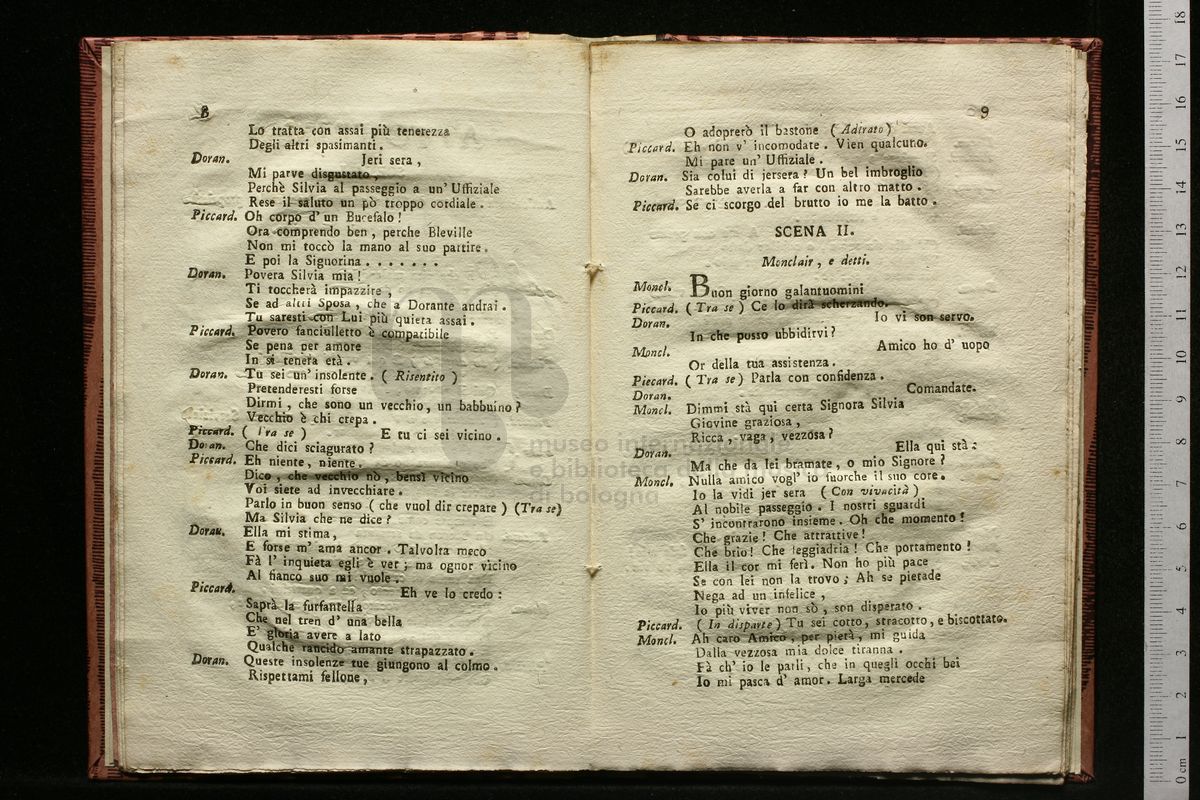 8
Lo tratta con assai più tenerezza
Degli altri spasimanti.
Doran. Jeri sera,
Mi parve disgustato,
Perchè Silvia al passeggio a un' Uffiziale
Rese il saluto un pò troppo cordiale.
Piccard. Oh corpo d' un Bucefalo!
Ora comprendo ben, perche Bleville
Non mi toccò la mano al suo partire.
E poi la Signorina . . . . . . .
Doran. Povera Silvia mia!
Ti toccherà impazzire,
Se ad altri Sposa, che a Dorante andrai.
Tu saresti con Lui più quieta assai.
Piccard. Povero fanciulletto è compatibile
Se pena per amore
In sì tenera età.
Doran. Tu sei un' insolente. (Risentito)
Pretenderesti forse
Dirmi, che sono un vecchio, un babbuino?
Vecchio è chi crepa.
Piccard. (Tra se) E tu ci sei vicino.
Doran. Che dici sciagurato?
Piccard. Eh niente, niente.
Dico, che vecchio nò, bensì vicino
Voi siete ad invecchiare.
Parlo in buon senso (che vuol dir crepare) (Tra se)
Ma Silvia che ne dice?
Doran. Ella mi stima,
E forse m' ama ancor. Talvolta meco
Fà l' inquieta egli è ver; ma ognor vicino
Al fianco suo mi vuole.
Piccard. Eh ve lo credo:
Saprà la furfantella
Che nel tren d' una bella
E' gloria avere a lato
Qualche rancido amante strapazzato.
Doran. Queste insolenze tue giungono al colmo.
Rispettami fellone,
9
O adoprerò il bastone (Adirato)
Piccard. Eh non v' incomodate. Vien qualcuno.
Mi pare un' Uffiziale.
Doran. Sia colui di jersera? Un bel imbroglio
Sarebbe averla a far con altro matto.
Piccard. Se ci scorgo del brutto io me la batto.
SCENA II.
Monclair, e detti.
Moncl. Buon giorno galantuomini
Piccard. (Tra se) Ce lo dirà scherzando.
Doran. Io vi son servo.
In che posso ubbidirvi?
Moncl. Amico ho d' uopo
Or della tua assistenza.
Piccard. (Tra se) Parla con confidenza.
Doran. Comandate.
Moncl. Dimmi stà qui certa Signora Silvia
Giovine graziosa,
Ricca, vaga, vezzosa?
Doran. Ella qui stà:
Ma che da lei bramate, o mio Signore?
Moncl. Nulla amico vogl' io fuorche il suo core.
Io la vidi jer sera (Con vivacità)
Al nobile passeggio. I nostri sguardi
S' incontrarono insieme. Oh che momento!
Che grazie! Che attrattive!
Che brio! Che leggiadria! Che portamento!
Ella il cor mi ferì. Non ho più pace
Se con lei non la trovo; Ah se pietade
Nega ad un infelice,
Io più viver non sò, son disperato.
Piccard. (In disparte) Tu sei cotto, stracotto, e biscottato.
Moncl. Ah caro Amico, per pietà, mi guida
Dalla vezzosa mia dolce tiranna.
Fà ch' io le parli, che in quegli occhi bei
Io mi pasca d' amor. Larga mercede
museo internazionale
e biblioteca della musica
di bologna
0 cm 1 2 3 4 5 6 7 8 9 10 11 12 13 14 15 16 17 18